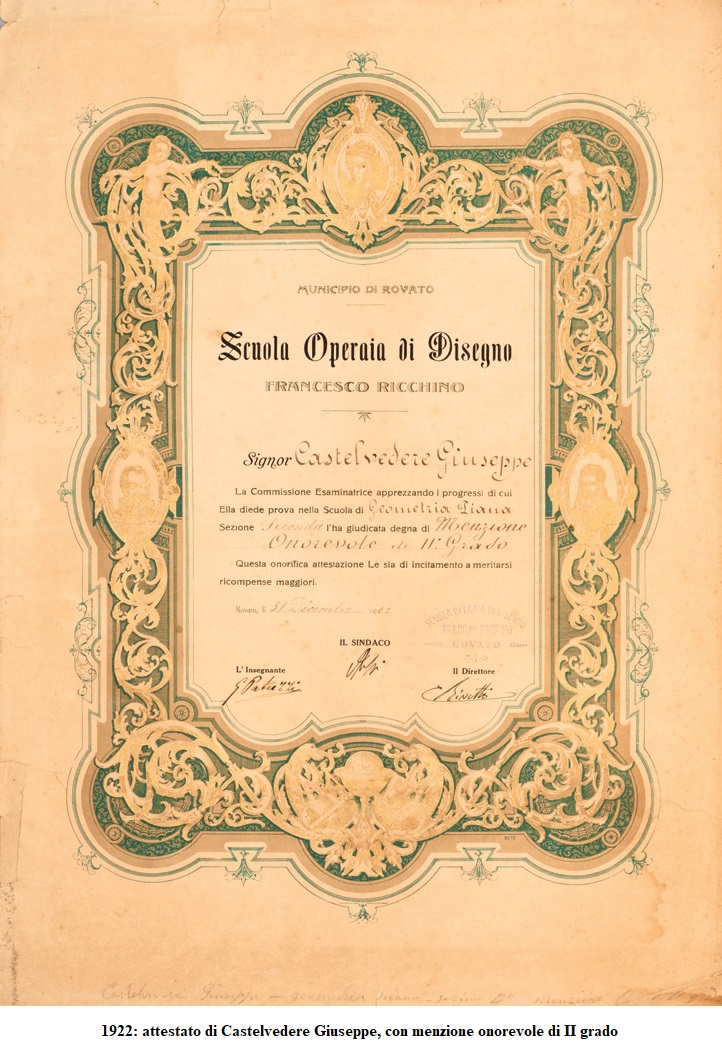 MUNICIPIO DI ROVATO
Scuola Operaia di Disegno
FRANCESCO RICCHINO
Signor Castelvedere Giuseppe
La Commissione Esaminatrice apprezzando i progressi di cui
Ella diede prova nella Scuola di Geometria Piana
Sezione Seconda l'ha giudicata degna di Menzione
Onorevole di IIº Grado
Questa onorifica attestazione Le sia di incitamento a meritarsi
ricompense maggiori.
Rovato, li 31 Dicembre
SCUOLA OPERAIA DI DISEGNO
ROVATO
IL SINDACO
L'Insegnante
Il Direttore
Giuseppe
1922: attestato di Castelvedere Giuseppe, con menzione onorevole di II grado